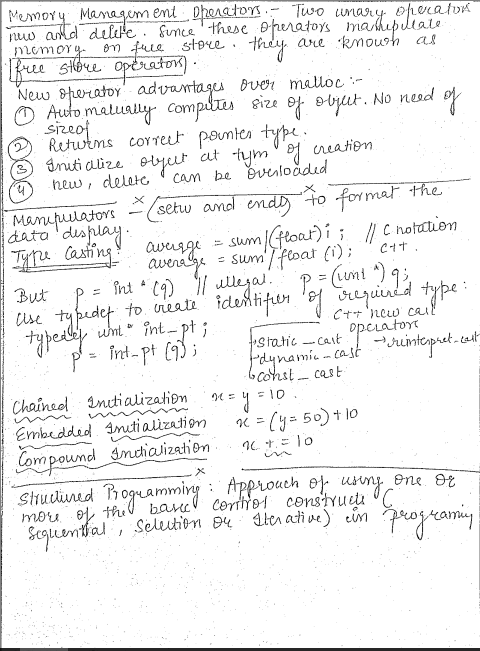 Memory Management Operators :- Two unary operators
new and delete. Since these operators manipulate
memory on free store. they are known as
free store operators.
New operator advantages over malloc :-
① Automatically computes size of object. No need of
sizeof
② Returns correct pointer type.
③ Initialize object at tym of creation
④ new, delete can be overloaded
x x
Manipulators - (setw and endl) to format the
data display.
Type Casting: average = sum/(float)i ; // C notation
average = sum/float(i); C++.
But p = int * (q) // illegal. p = (int *) q;
Use typedef to create identifier of required type:
typedef int * int_pt ;
p = int_pt (q);
C++ new cast
operators
static_cast → reinterpret_cast
dynamic_cast
const_cast
Chained Initialization x = y = 10.
Embedded Initialization x = (y = 50) + 10
Compound Initialization x += 10
x
Structured Programming : Approach of using one or
more of the basic control constructs (
Sequential, Selection or Iterative) in programing